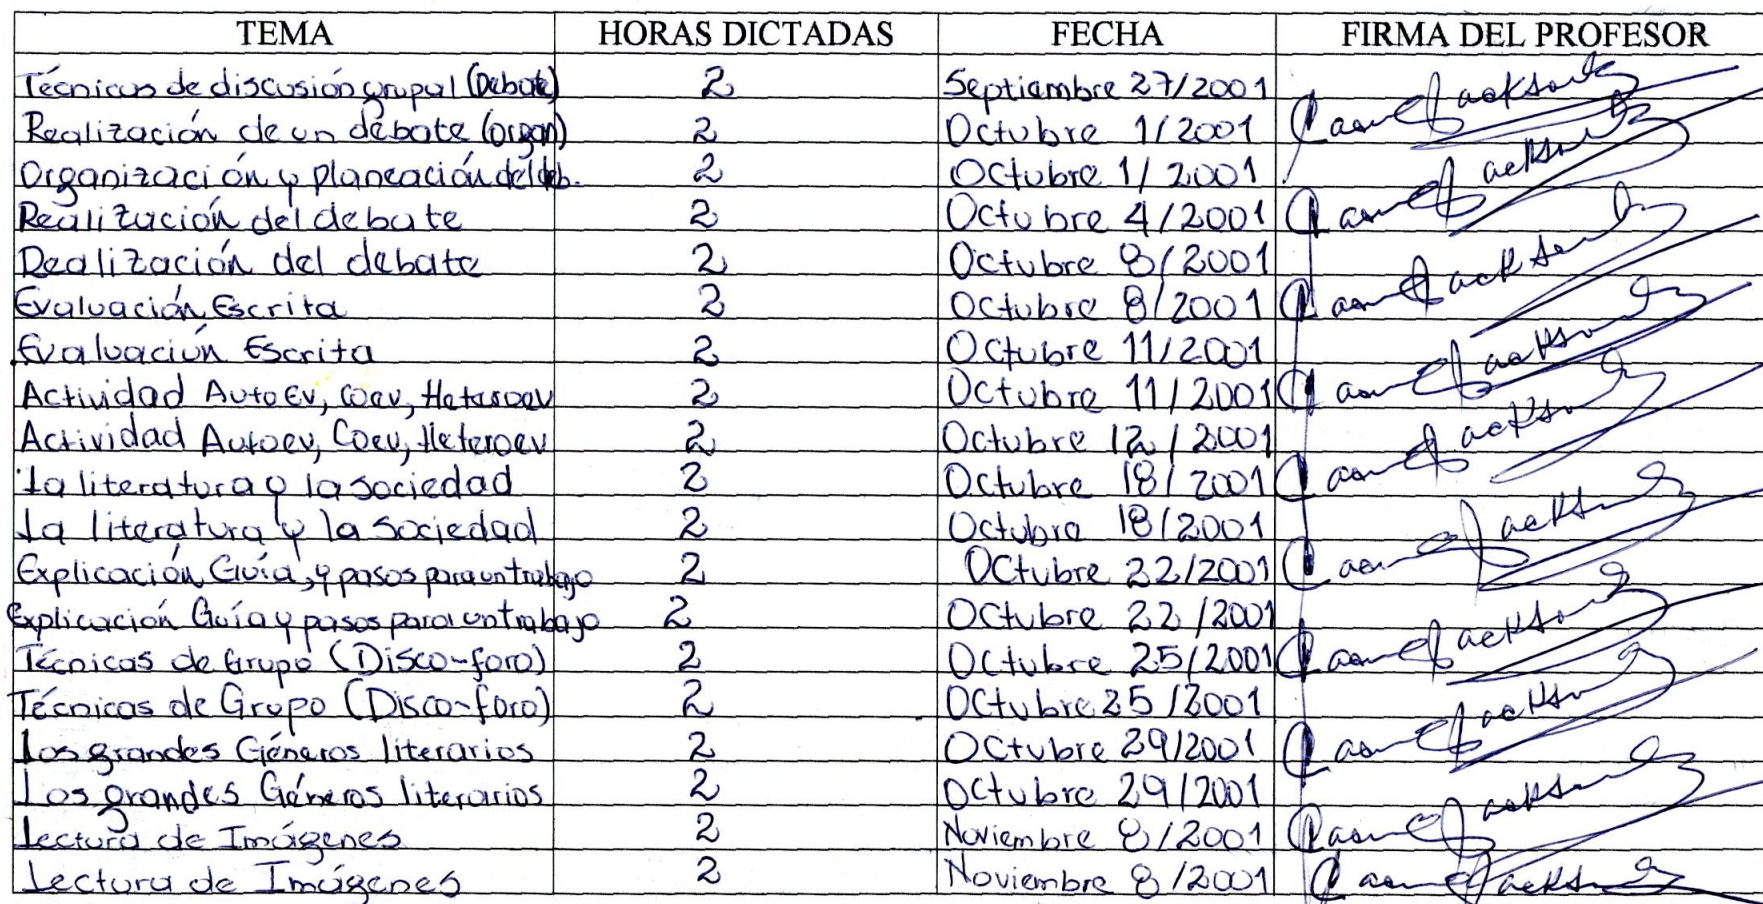 TEMA HORAS DICTADAS FECHA FIRMA DEL PROFESOR
Técnicas de discusión grupal (Debate) 2 Septiembre 27/2001
Realización de un debate (organ) 2 Octubre 1/2001
Organización y planeación del deb. 2 Octubre 1/2001
Realización del debate 2 Octubre 4/2001
Realización del debate 2 Octubre 8/2001
Evaluación Escrita 2 Octubre 8/2001
Evaluación Escrita 2 Octubre 11/2001
Actividad AutoEv, Coev, Heteroev 2 Octubre 11/2001
Actividad Autoev, Coev, Heteroev 2 Octubre 12/2001
La literatura y la sociedad 2 Octubre 18/2001
La literatura y la sociedad 2 Octubre 18/2001
Explicación Guía, y pasos para un trabajo 2 Octubre 22/2001
Explicación Guía y pasos para un trabajo 2 Octubre 22/2001
Técnicas de Grupo (Disco-foro) 2 Octubre 25/2001
Técnicas de Grupo (Disco-foro) 2 Octubre 25/2001
Los grandes Géneros literarios 2 Octubre 29/2001
Los grandes Géneros literarios 2 Octubre 29/2001
Lectura de Imágenes 2 Noviembre 8/2001
Lectura de Imágenes 2 Noviembre 8/2001